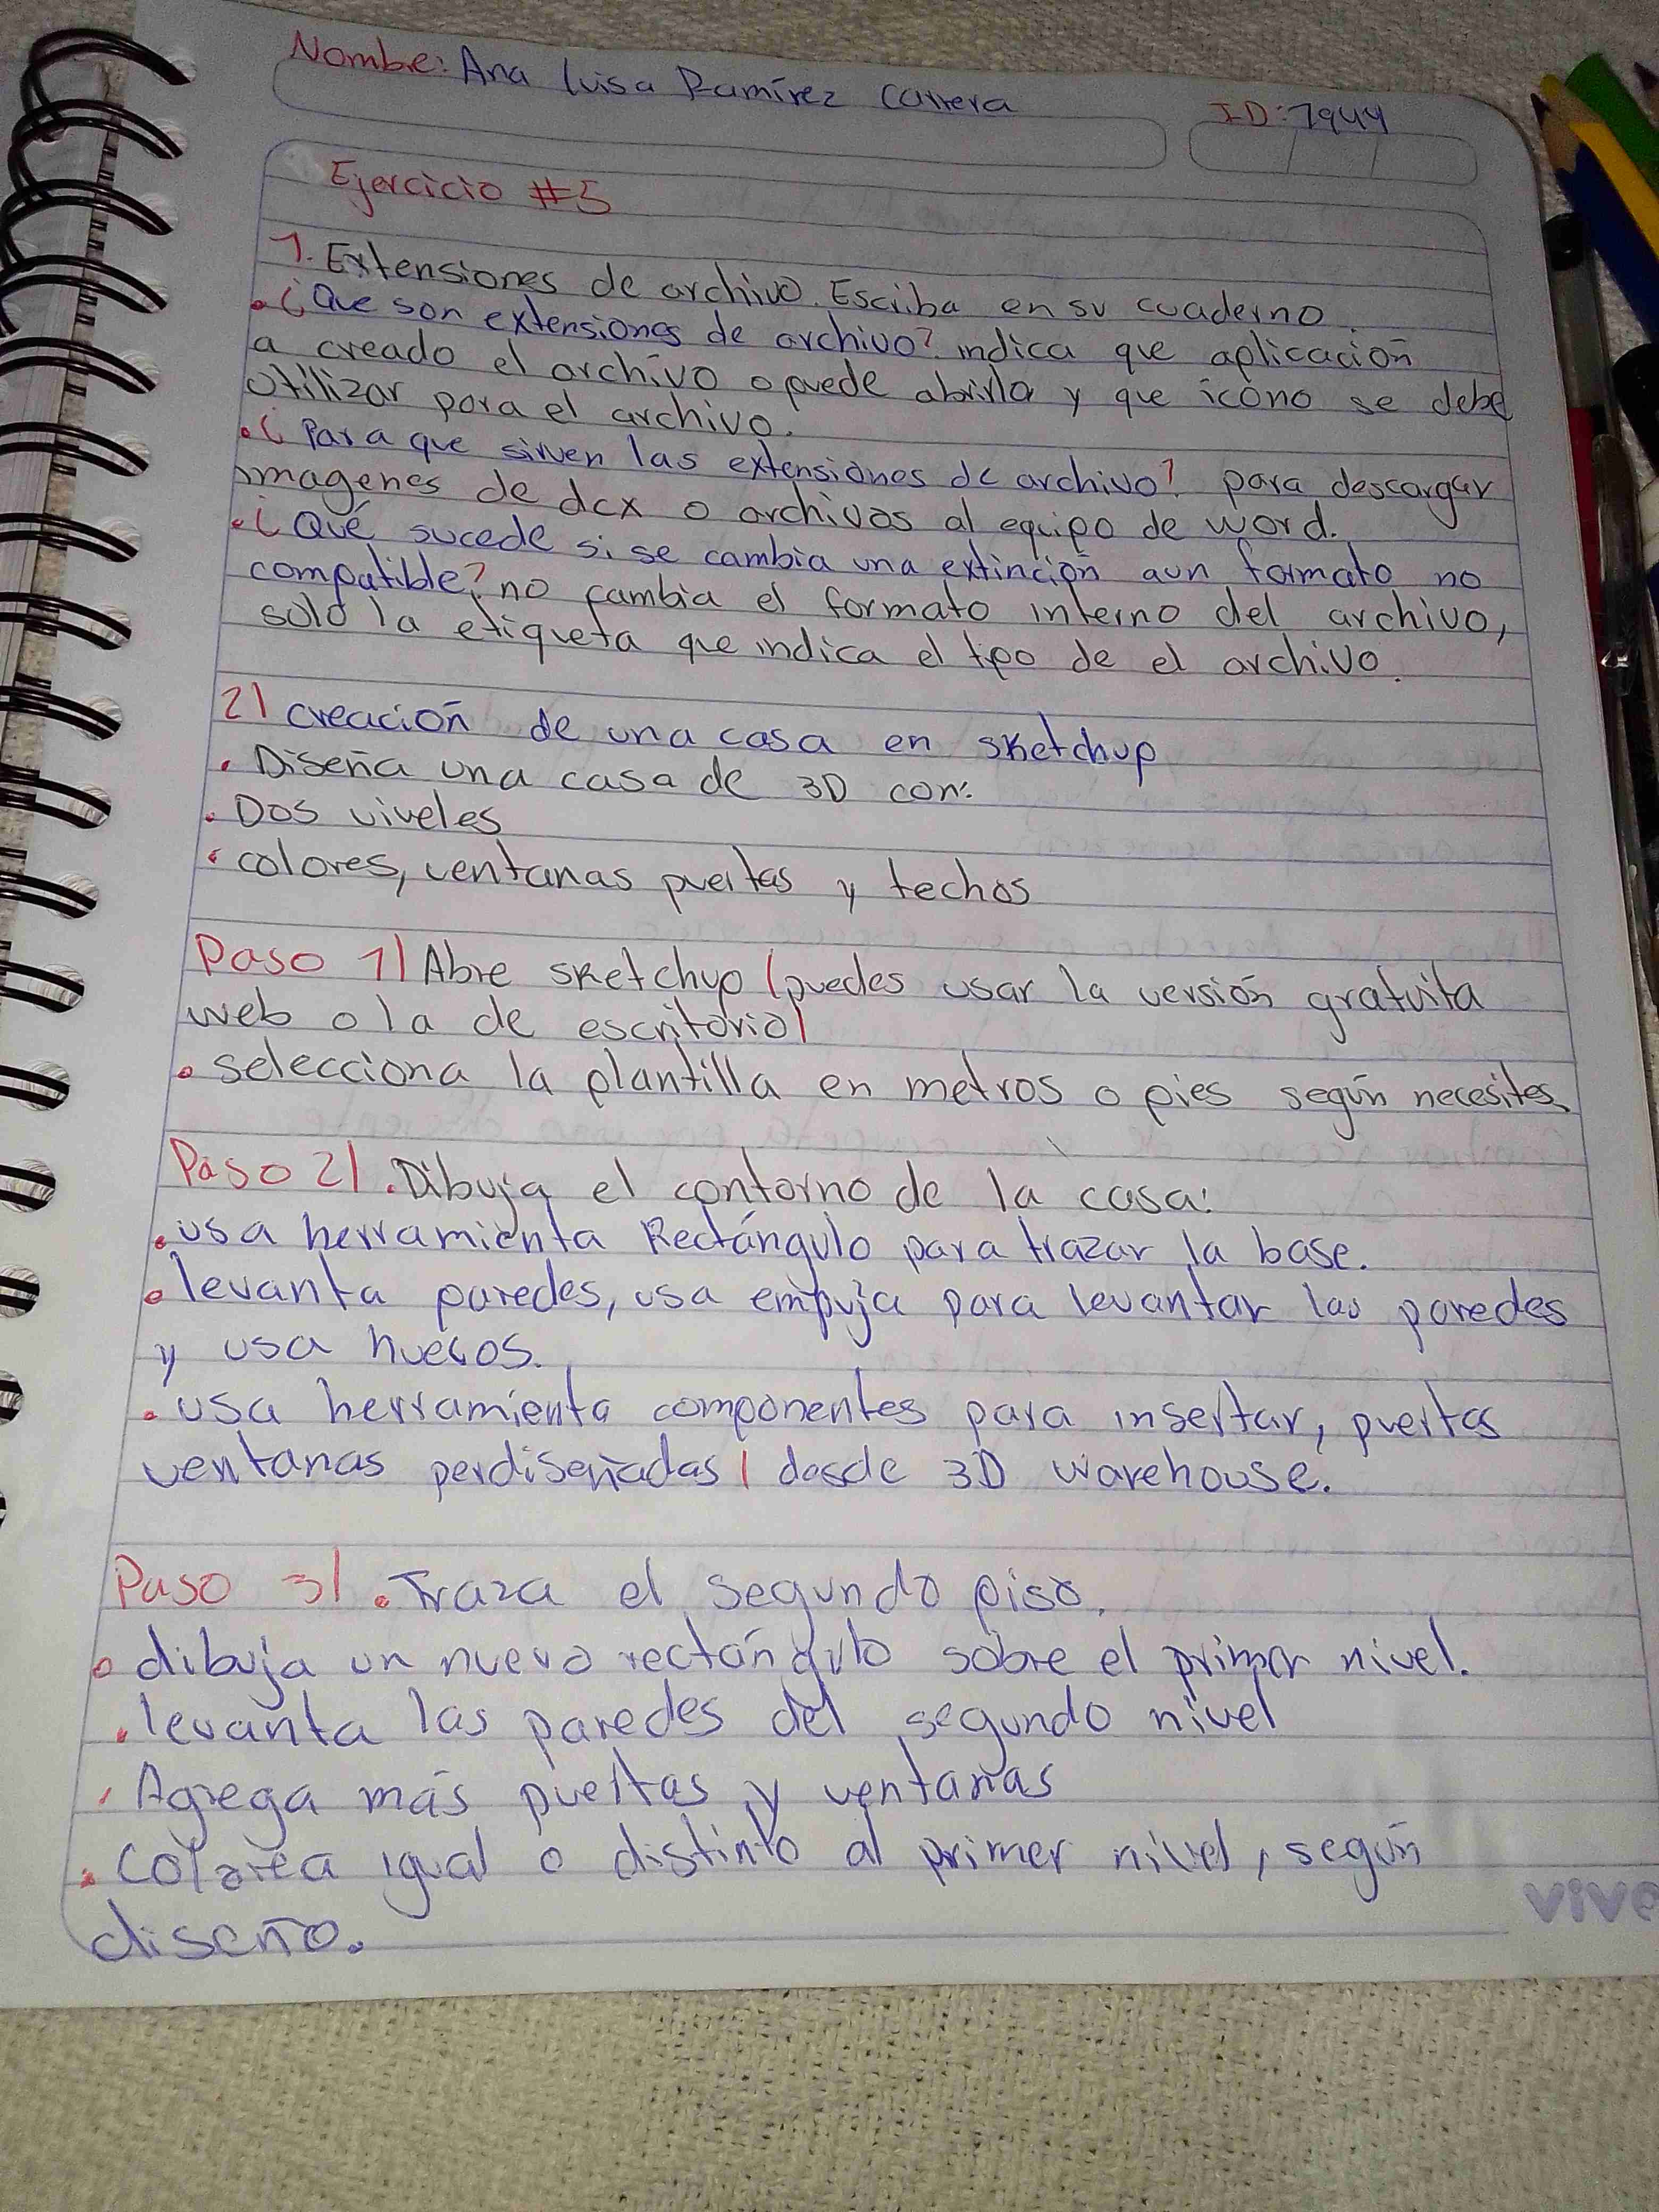 Nombre: Ana luisa Ramírez Carrera
ID: 7944
Ejercicio #5
1. Extensiones de archivo. Escriba en su cuaderno.
• ¿Que son extensiones de archivo? indica que aplicación
a creado el archivo o puede abrirla y que icono se debe
utilizar para el archivo.
• ¿Para que sirven las extensiones de archivo? para descargar
imagenes de dcx o archivos al equipo de word.
• ¿Qué sucede si se cambia una extinción aun formato no
compatible? no cambia el formato interno del archivo,
solo la etiqueta que indica el tipo de el archivo.
2) creación de una casa en sketchup
• Diseña una casa de 3D con:
• Dos viveles
• colores, ventanas puertas y techos
Paso 1) Abre sketchup (puedes usar la versión gratuita
web o la de escritorio)
• selecciona la plantilla en metros o pies según necesites.
Paso 2) . Dibuja el contorno de la casa:
• usa herramienta Rectángulo para trazar la base.
• levanta paredes, usa empuja para levantar las paredes
y usa huecos.
• usa herramienta componentes para insertar, puertas
ventanas perdiseñadas ) desde 3D warehouse.
Paso 3) . Traza el segundo piso.
• dibuja un nuevo rectángulo sobre el primer nivel.
• levanta las paredes del segundo nivel
• Agrega más puertas y ventanas
• Colorea igual o distinto al primer nivel, según
diseño.
vive